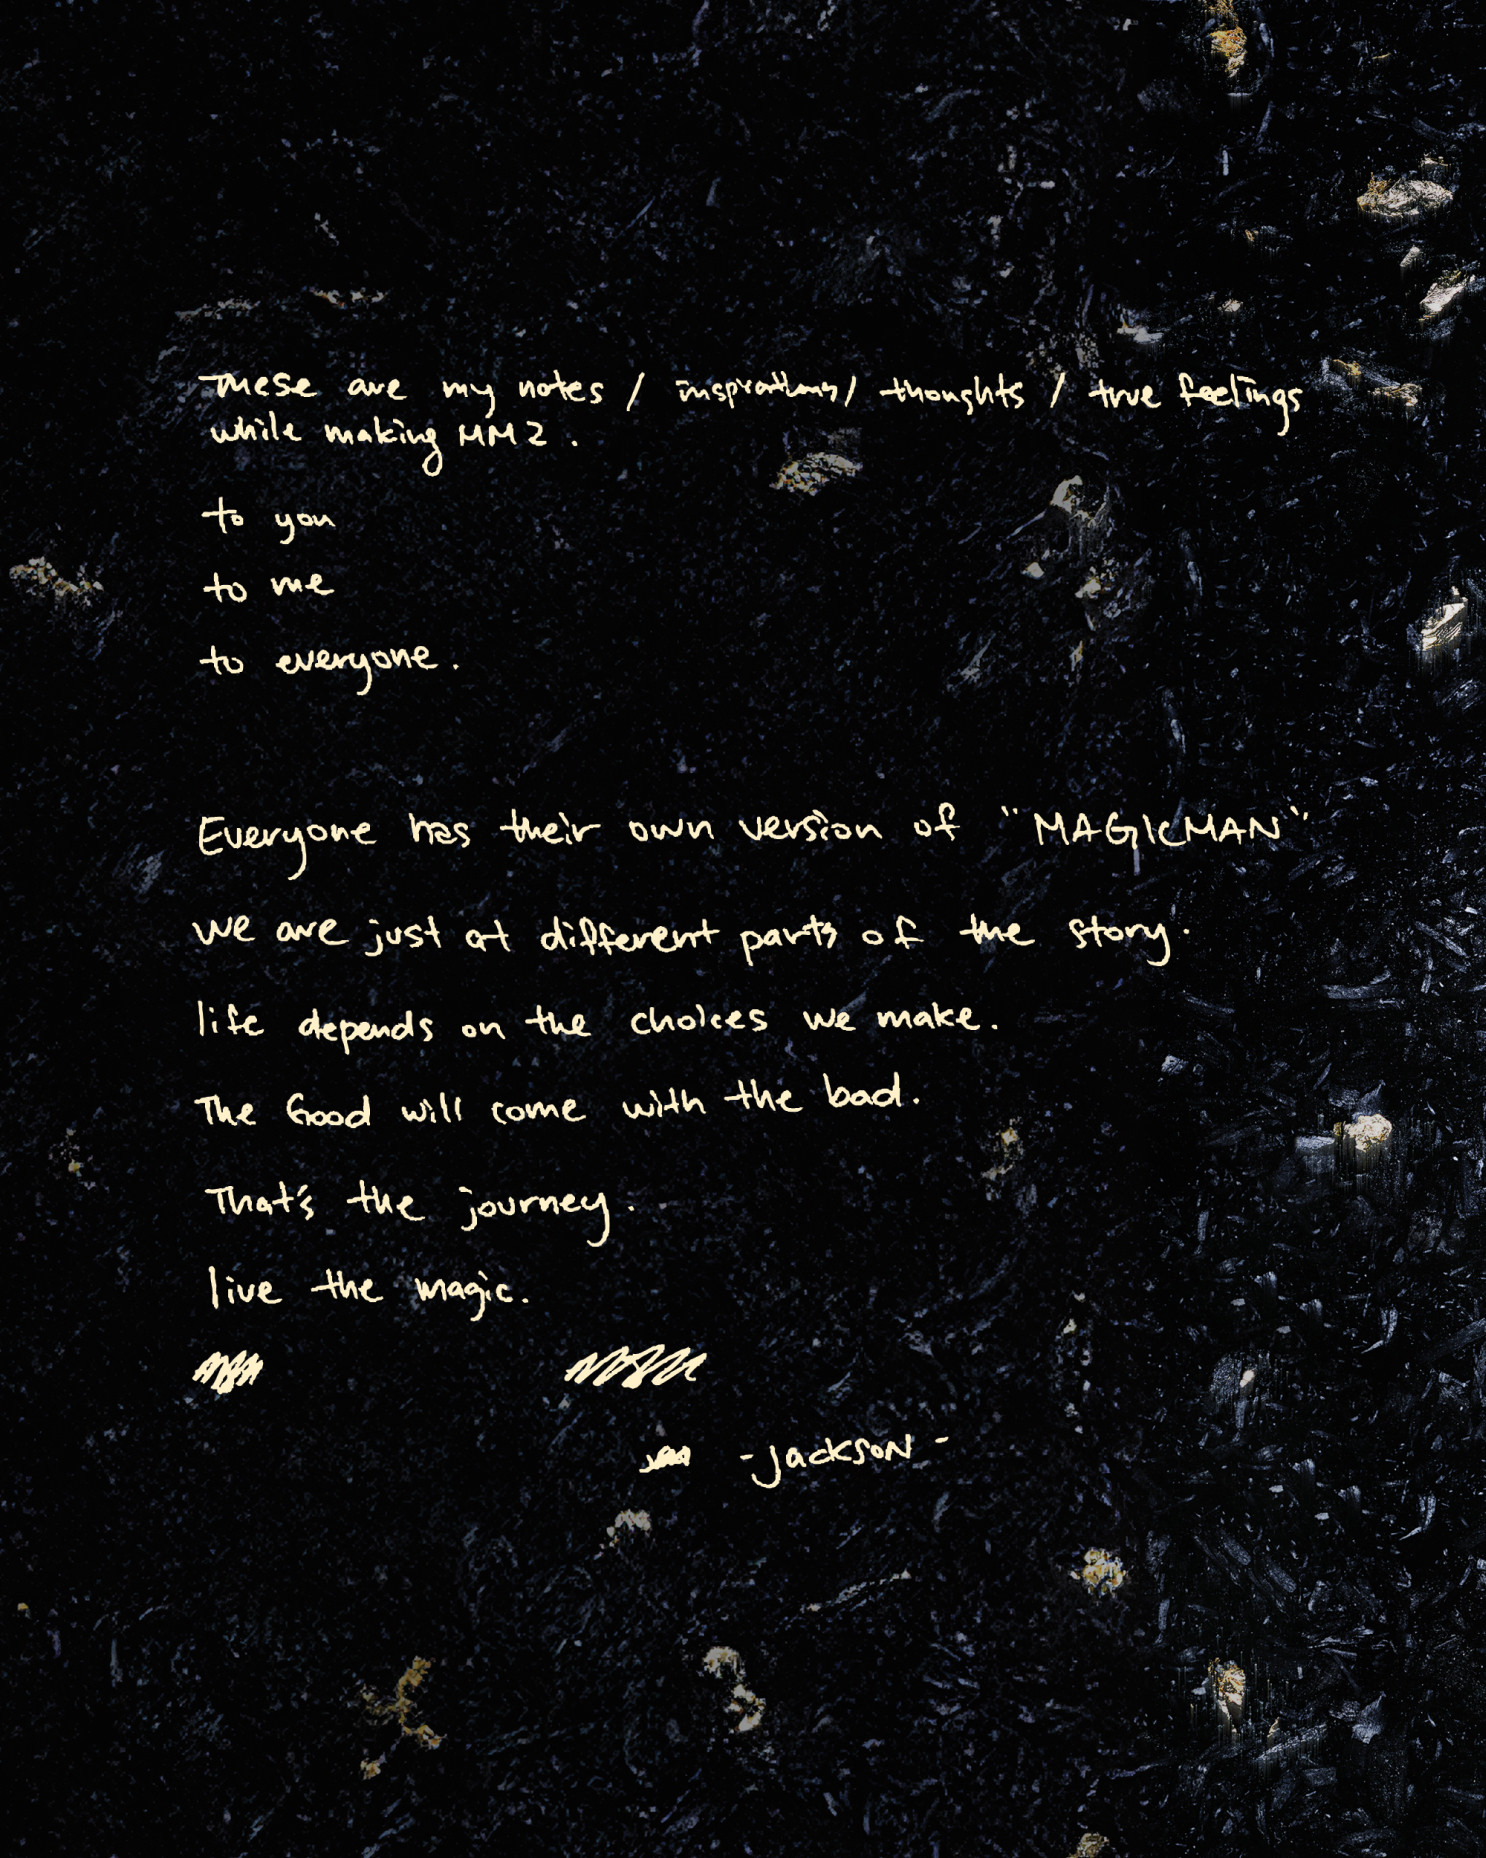 These are my notes / inspirations / thoughts / true feelings
while making MM2.
to you
to me
to everyone.
Everyone has their own version of "MAGICMAN"
we are just at different parts of the story.
life depends on the choices we make.
The Good will come with the bad.
That's the journey.
live the magic.
-Jackson-